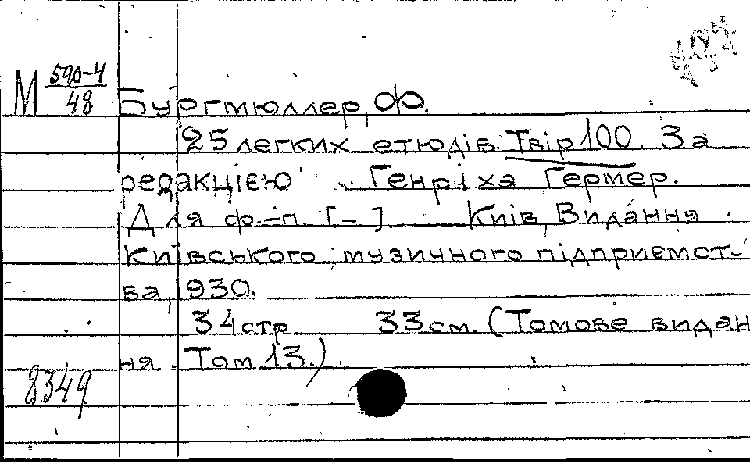 М 590-4/48
Бургмюллер, Ф.
25 легких етюдів Твір 100. За
редакцією Генріха Гермер.
Для ф.-п. [-] Київ, Видання
Київського музичного підприємст-
ва, 1930.
34 стр. 33 см. (Томове видан
ня. Том 13.)
8349